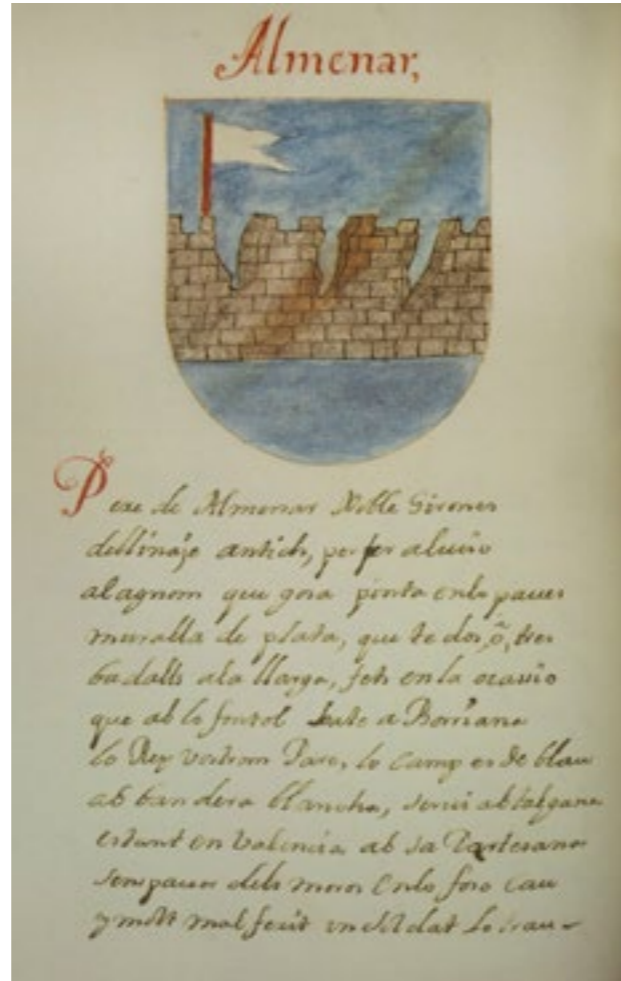 Almenar,
Pere de Almenar Noble Girones
del linaje antich, per fer alusio
al agnom que gosa pinta en lo paues
muralla de plata, que te dos, ò, tres
badalls a la llarga, fets en la ocasio
que ab lo fonèvol baté a Borriana
lo Rey vostron Pare, lo camp es de blau
ab bandera blancha, servi ab tal gana
estant en Valencia ab sa Partesana
sens pauor dels moros en lo foso cau
y molt mal ferit un soldat lo trau-